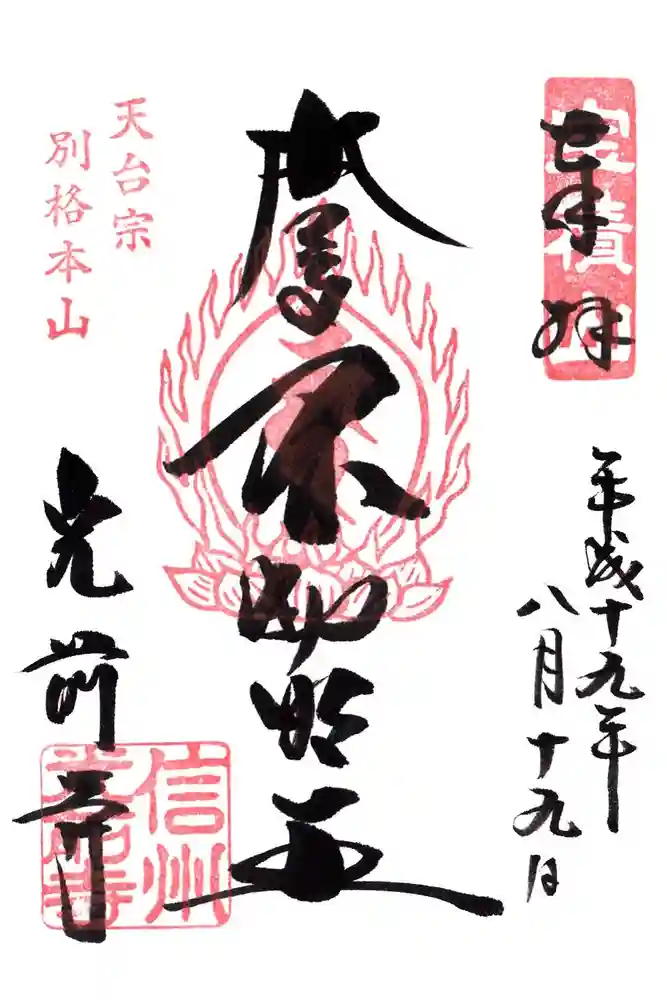 奉拝
宝積山
平成十九年
八月十九日
不動明王
天台宗
別格本山
光前寺
信州
光前寺